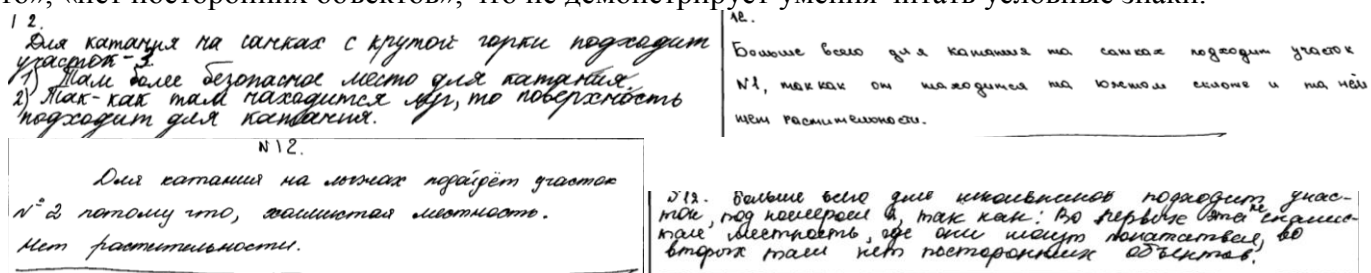 то», «нет посторонних объектов», что не демонстрирует умения читать условные знаки.
12.
Для катания на санках с крутой горки подходит
участок - 3.
1) Там более безопасное место для катания.
2) Так-как там находится луг, то поверхность
подходит для катания.
12.
Больше всего для катания на санках подходит участок
№1, так как он находится на южном склоне и на нём
нет растительности.
N12.
Для катания на лыжах подойдёт участок
№2 потому что, холмистая местность.
Нет растительности.
N12. Больше всего для школьников подходит учас-
ток, под номером 2, так как: Во первых эта не
местность, где они могут покататься, во
вторых там нет посторонних объектов.